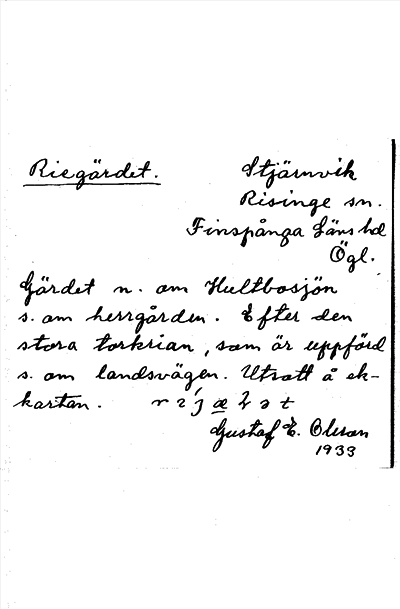 Riegärdet. Stjärnvik
Risinge sn.
Finspånga läns hd
Ögl.
Gärdet n. om Hultbosjön
s. om herrgården. Efter den
stora torkrian, som är uppförd
s. om landsvägen. Utsatt å ek-
kartan.
Gustaf E. Olsson
1933